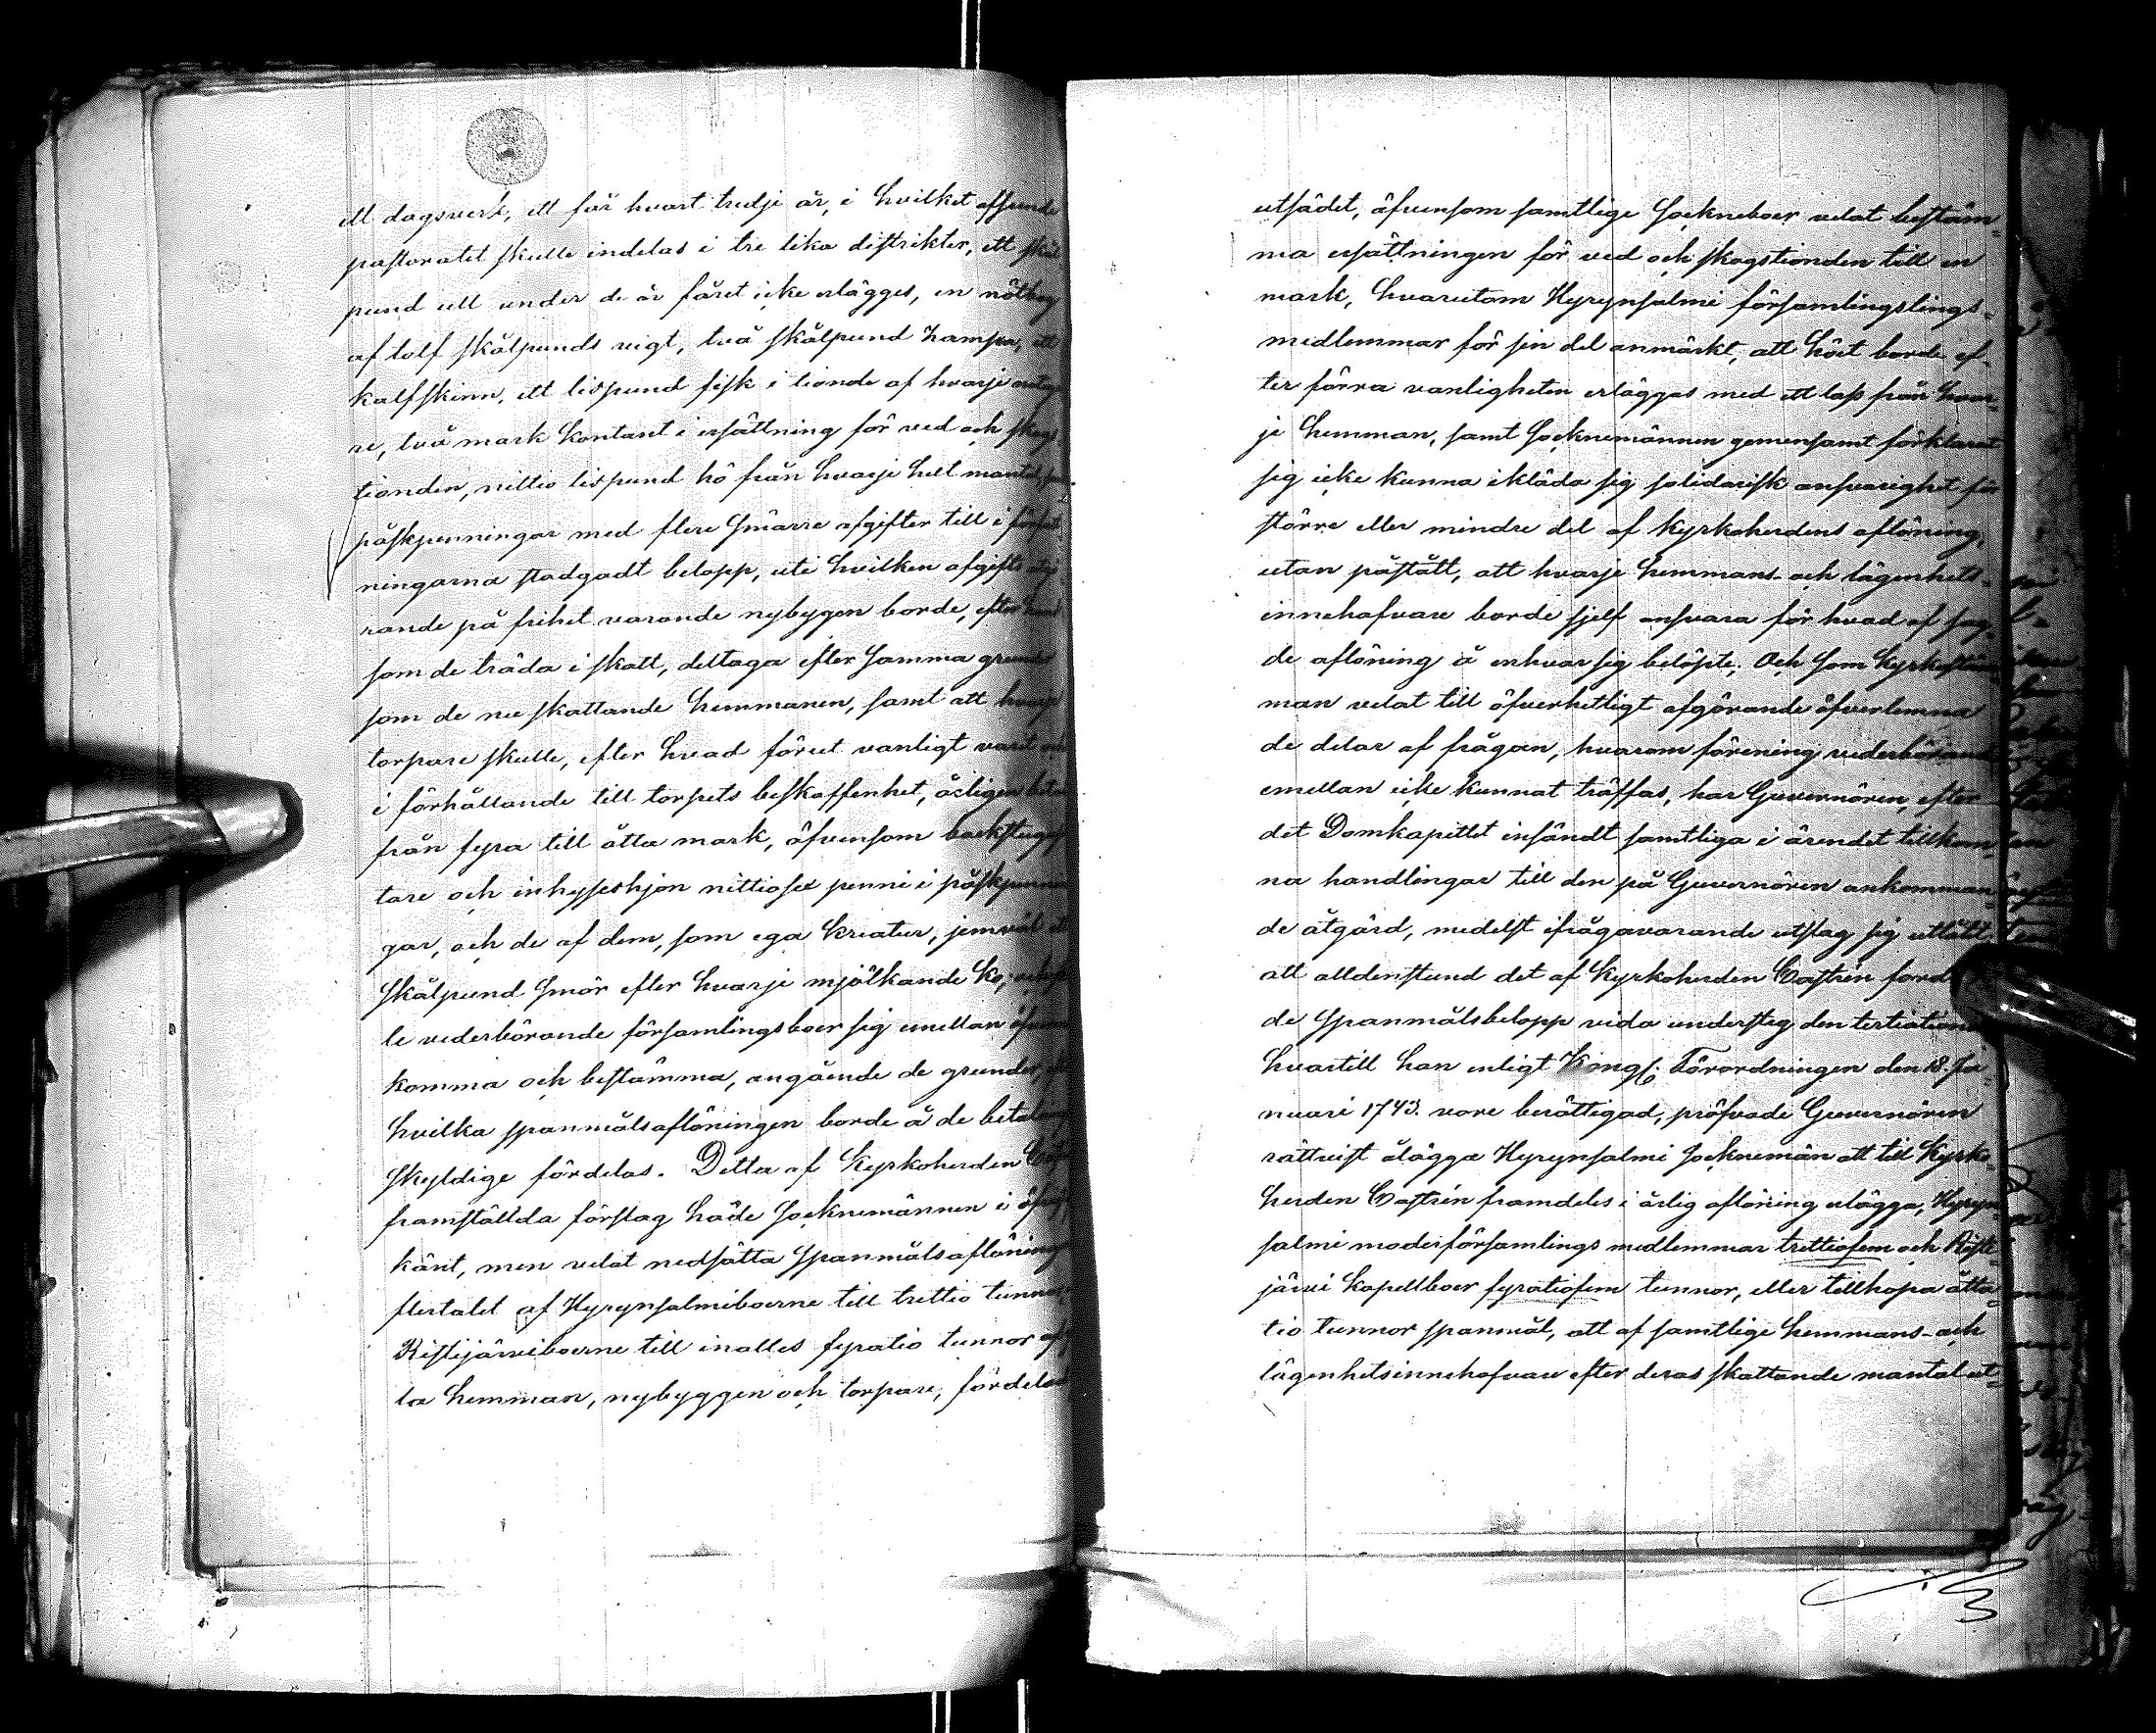 ett dagsverk, ett får hvart tredje år, i hvilket afseende
pastoratet skulle indelas i tre lika distrikter, ett skål
pund ull under de år fåret icke erlägges, en nötbog
af tolf skålpunds vigt, två skålpund hampa, ett
kalfskinn, ett lispund fisk i tionde af hvarje
re, två mark kontant i ersättning för ved och skogs
tionden, nittio lispund hö från hvarje helt mantal,
påskpenningar med flere smärre afgifter till i författ
ningarna stadgadt belopp, uti hvilken afgifts
rande på frihet varande nybyggen borde, efter hand
som de träda i skatt, deltaga efter samma grunder
som de nu skattande hemmanen, samt att hvarje
torpare skulle, efter hvad förut vanligt varit och
i förhållande till torpets beskaffenhet, årligen
från fyra till åtta mark, äfvensom backstugusit
tare och inhyseshjon nittiosex penni i påskpennin
gar, och de af dem, som ega kreatur, jemväl ett
skålpund smör efter hvarje mjölkande ko,
le vederbörande församlingsboer sig emellan öfverens
komma och bestämma, angående de grunder,
hvilka spanmålsaflöningen borde å de betalnings
skyldige fördelas. Detta af Kyrkoherden
framställda förslag både Socknemännen i
känt, men velat nedsätta spanmålsaflöningen
flertalet af Hyrynsalmiboerne till trettio tunnor,
Ristijärviboerne till inalles fyratio tunnor
la hemman, nybyggen och torpare, fördelad
utsädet, äfvensom samtlige Sockneboer velat bestäm-
ma ersättningen för ved och skogstionden till en
mark, hvarutom Hyrynsalmi församlingslings-
medlemmar för sin del anmärkt, att höet borde ef-
ter förra vanligheten erläggas med ett lass från hvar-
je hemman, samt Socknemännen gemensamt förklarat
sig icke kunna ikläda sig solidarisk ansvarighet för
större eller mindre del af kyrkoherdens aflöning,
utan påstått, att hvarje hemmans- och lägenhets-
innehafvare borde sjelf ansvara för hvad af sag-
de aflöning å enhvar sig belöpte. Och som Kyrkostäm-
man velat till öfverhetligt afgörande öfverlemna
de delar af frågan, hvarom förening vederbörande
emellan icke kunnat träffas, har Guvernören, efter
det Domkapitlet insändt samtliga i ärendet tillkom-
na handlingar till den på Guvernören ankomman-
de åtgärd, medelst ifrågavarande utslag sig utlåtit
att alldenstund det af Kyrkoherden Castrén ford
de spanmålsbelopp vida understeg den tertialtionde
hvartill han enligt Kongl. Förordningen den 18. Ja-
nuari 1743. vore berättigad, pröfvade Guvernören
rättvist ålägga Hyrynsalmi Socknemän att till Kyrko-
herden Castrén framdeles i årlig aflöning erlägga, Hyryn-
salmi moderförsamlings medlemmar trettiofem och Risti-
järvi kapellboer fyratiofem tunnor, eller tillhopa åtta-
tio tunnor spanmål, att af samtlige hemmans- och
lägenhetsinnehafvare efter deras skattande mantal ut-